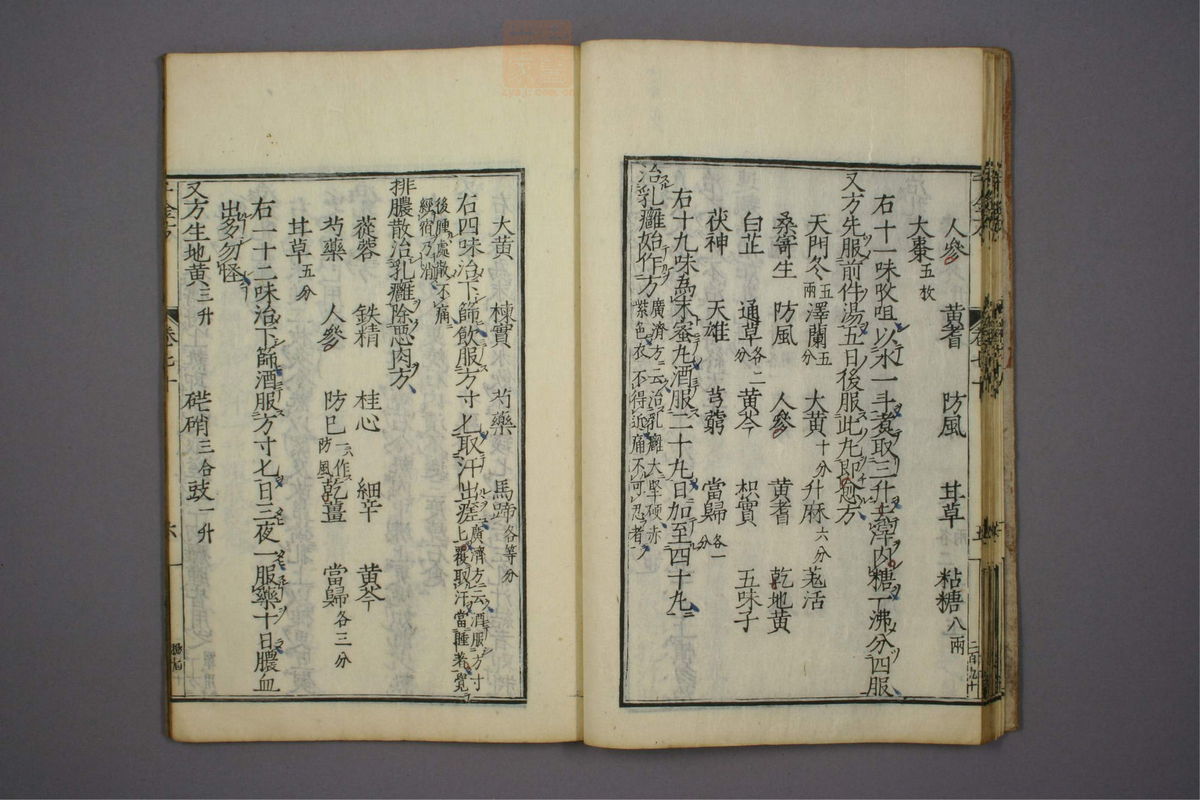 人參 黃耆 防風 甘草 粘糖八兩
大棗五枚
右十一味㕮咀以水一斗煮取三升去滓內糖一沸分四服
又方先服前件湯五日後服此丸即愈方
天門冬五兩 澤蘭五分 大黃十分 升麻六分 羗活
桑寄生 防風 人參 黃耆 乾地黃
白芷 通草各二分 黃芩 枳實 五味子
茯神 天雄 芎藭 當歸各一分
右十九味為末蜜丸酒服二十丸日加至四十丸
治乳癰始作方廣濟方云治乳癰大堅硬赤紫色衣不得近痛不可忍者
大黃 楝實 芍藥 馬蹄各等分
右四味治下篩飲服方寸匕取汗出瘥廣濟方云酒服方寸上覆取汗當睡著覺
後腫處散不痛經宿乃消
排膿散治乳癰除惡肉方
蓯蓉 鉄精 桂心 細辛 黃芩
芍藥 人參 防已一云作防風 乾薑 當歸各三分
甘草五分
右一十二味治下篩酒服方寸匕日三夜一服藥十日膿血
出多勿怪
又方生地黃三升 硭硝三合 豉一升
千金方 卷七十 六